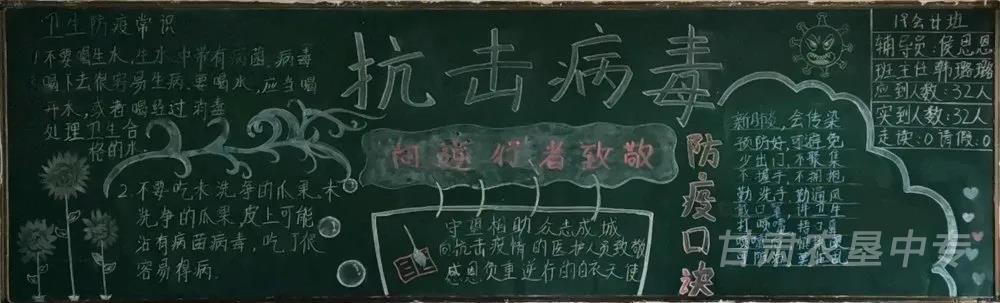 卫生防疫常识
1.不要喝生水,生水中带有病菌、病毒
喝下去很容易生病,要喝水,应当喝
开水,或者喝经过消毒
处理卫生合
格的水.
2.不要吃未洗净的瓜果,未
洗净的瓜果,皮上可能
沾有病菌病毒,吃了很
容易得病.
抗击病毒
向逆行者致敬
守望相助 众志成城
向抗击疫情的医护人员致敬
感恩负重逆行的白衣天使
防疫口诀
新肺炎,会传染
预防好,可避免
少出门,不聚集
不握手,不拥抱
勤洗手,勤通风
戴口罩,讲卫生
18会计班
辅导员:侯思恩
班主任 韩璐璐
应到人数:32人
实到人数:32人
走读:0 请假:0
甘肃农垦中专